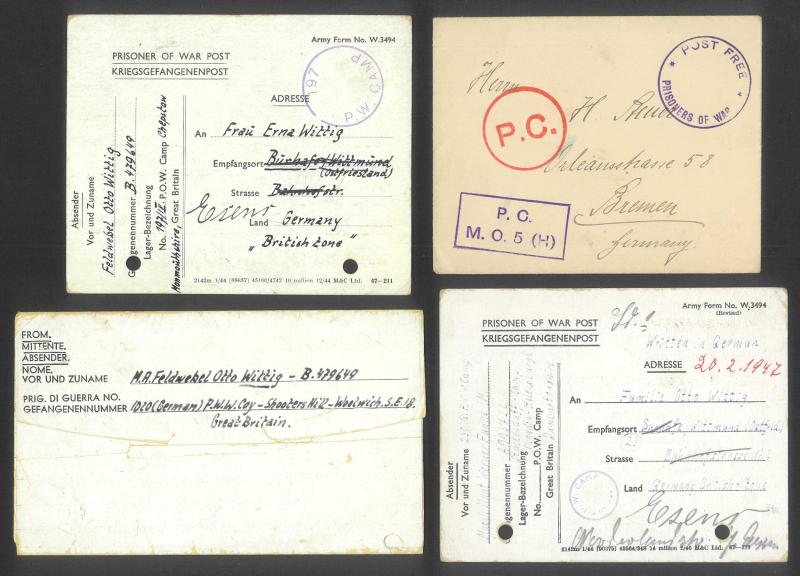 Army Form No. W.3494
PRISONER OF WAR POST
KRIEGSGEFANGENENPOST
197
P.W. CAMP
ADRESSE
An Frau Erna Wittig
Empfangsort Burhafe/Wittmund
(Ostfriesland)
Strasse Bahnhofstr.
Esens
Land Germany
"British Zone"
2142m 1/44 (80657) 45160/4747 10 million 12/44 M&C Ltd. 47—211
Absender
Vor und Zuname
Feldwebel Otto Wittig
Gefangenennummer B.479649
Lager-Bezeichnung
No. 197/IV P.O.W. Camp Chepstow
Monmouthshire, Great Britain
POST FREE
PRISONERS OF WAR
Herrn
P.C.
H.
Orleansstrasse 58
Bremen
Germany.
P.C.
M.O.5 (H)
FROM.
MITTENTE.
ABSENDER.
NOME.
VOR UND ZUNAME M.A. Feldwebel Otto Wittig - B.479649
PRIG. DI GUERRA NO.
GEFANGENENNUMMER 1020 (German) P.W.W. Coy - Shooters Hill - Woolwich. S.E.18.
Great Britain.
Army Form No. W.3494
(Revised)
PRISONER OF WAR POST
KRIEGSGEFANGENENPOST
Written in German
ADRESSE 20.2.1947
An Familie Otto Wittig
Empfangsort Wittmund
Strasse
Land Germany British-Zone
Esens
W. CAMP
2142m 1/44 14 million 2/46 M&C Ltd. 47—211
Absender
Vor und Zuname
Gefangenennummer
Lager-Bezeichnung
No. P.O.W. Camp
Great Britain